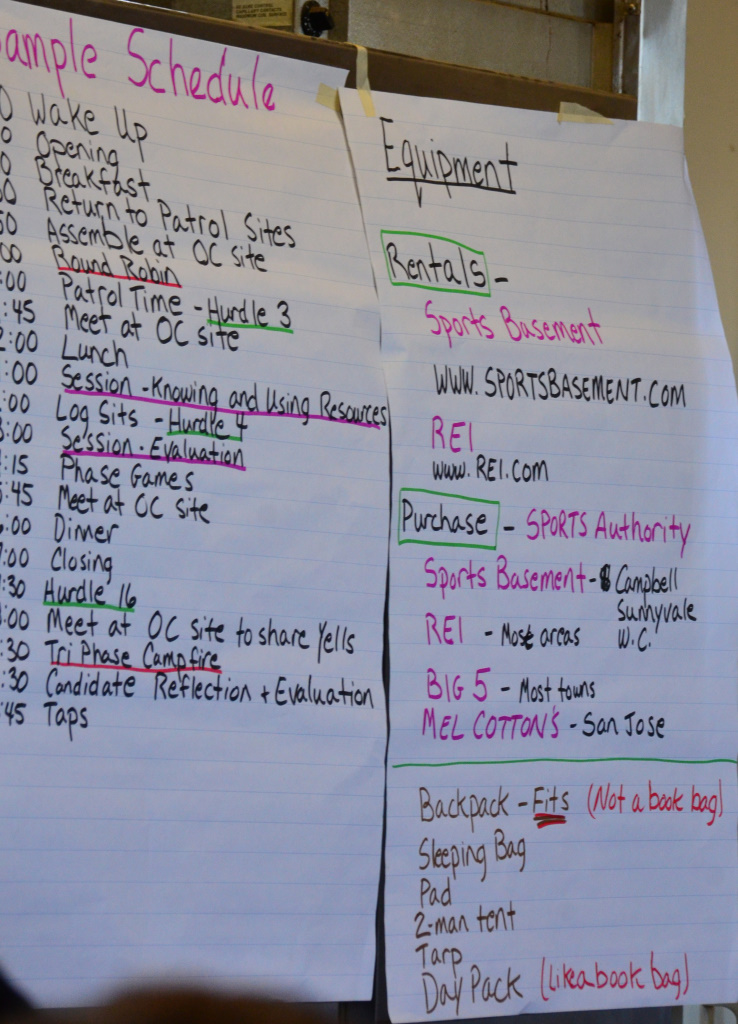 ample Schedule
0 Wake Up
0 Opening
0 Breakfast
00 Return to Patrol Sites
50 Assemble at OC site
00 Round Robin
:00 Patrol Time - Hurdle 3
:45 Meet at OC site
2:00 Lunch
:00 Session - Knowing and Using Resources
:00 Log Sits - Hurdle 4
3:00 Session - Evaluation
:15 Phase Games
5:45 Meet at OC site
:00 Dinner
:00 Closing
:30 Hurdle 16
:00 Meet at OC site to share Yells
:30 Tri Phase Campfire
:30 Candidate Reflection + Evaluation
:45 Taps
Equipment
Rentals -
Sports Basement
WWW.SPORTSBASEMENT.COM
REI
WWW.REI.COM
Purchase - SPORTS Authority
Sports Basement - Campbell
Sunnyvale
W.C.
REI - Most areas
BIG 5 - Most towns
MEL COTTON'S - San Jose
Backpack - Fits (Not a book bag)
Sleeping Bag
Pad
2-man tent
Tarp
Day Pack (like a book bag)